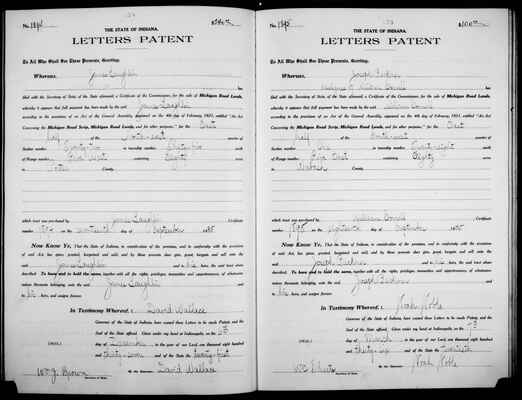 No. 1894
THE STATE OF INDIANA.
LETTERS PATENT
To All Who Shall See These Presents, Greeting.
Whereas, James Laughlin
filed with the Secretary of State, of the State aforesaid, a Certificate of the Commissioner, for the sale of Michigan Road Lands,
whereby it appears that full payment has been made by the said James Laughlin
according to the provisions of an Act of the General Assembly, approved on the 4th day of February, 1831, entitled "An Act
Concerning the Michigan Road Scrip, Michigan Road Lands, and for other purposes," for the East
half of the North-west quarter of
Section number Twenty-two in township number Thirty-five north
of Range number Five West containing Eighty acres
in Porter County.
which tract was purchased by James Laughlin Certificate
1894 on the nineteenth day of September 1835
Now Know Ye, That the State of Indiana, in consideration of the premises, and in conformity with the provisions
of said Act, has given, granted, bargained and sold, and by these presents does give, grant, bargain and sell unto the
said James Laughlin and his heirs, the said tract above
described. To have and to hold the same, together with all the rights, privileges, immunities and appurtenances of whatsoever
nature thereunto belonging, unto the said James Laughlin and
to his heirs, and assigns forever.
In Testimony Whereof I David Wallace
Governor of the State of Indiana, have caused these Letters to be made Patent, and the
Seal of the State affixed. Given under my hand at Indianapolis, on the
day of December in the year of our Lord, one thousand eight hundred
and thirty-seven and of the State the twenty-first
By the Governor: David Wallace
Wm. J. Brown
Secretary of State.
No. 1895
THE STATE OF INDIANA.
LETTERS PATENT
To All Who Shall See These Presents, Greeting.
Whereas, Joseph
assignee of William
filed with the Secretary of State, of the State aforesaid, a Certificate of the Commissioner, for the sale of Michigan Road Lands,
whereby it appears that full payment has been made by the said William
according to the provisions of an Act of the General Assembly, approved on the 4th day of February, 1831, entitled "An Act
Concerning the Michigan Road Scrip, Michigan Road Lands, and for other purposes," for the East
half of the North-west quarter of
Section number in township number Thirty-eight north
of Range number containing Eighty acres
in County.
which tract was purchased by William Certificate
1895 on the nineteenth day of September 1835
Now Know Ye, That the State of Indiana, in consideration of the premises, and in conformity with the provisions
of said Act, has given, granted, bargained and sold, and by these presents does give, grant, bargain and sell unto the
said Joseph and his heirs, the said tract above
described. To have and to hold the same, together with all the rights, privileges, immunities and appurtenances of whatsoever
nature thereunto belonging, unto the said Joseph and
to his heirs, and assigns forever.
In Testimony Whereof I Noah Noble
Governor of the State of Indiana, have caused these Letters to be made Patent, and the
Seal of the State affixed. Given under my hand at Indianapolis, on the
day of March in the year of our Lord, one thousand eight hundred
and thirty-six and of the State the Twentieth
By the Governor: Noah Noble
Secretary of State.